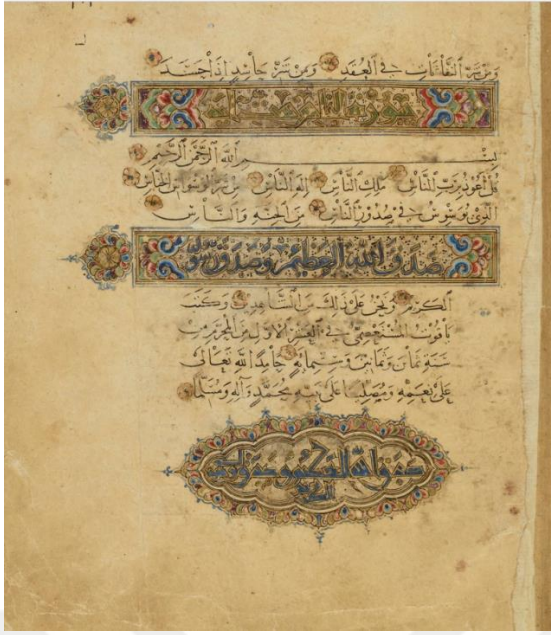 ومن شر النفاثات في العقد ومن شر حاسد إذا حسد
سورة الناس ست آيات
بسم الله الرحمن الرحيم
قل أعوذ برب الناس ملك الناس إله الناس من شر الوسواس الخناس
الذي يوسوس في صدور الناس من الجنة والناس
صدق الله العظيم وصدق رسوله
الكريم ونحن على ذلك من الشاهدين وكتب
ياقوت المستعصمي في العشر الأول من المحرم
سنة ثمان وثمانين وستمائة حامدا لله تعالى
على نعمه ومصليا على نبيه محمد وآله ومسلما